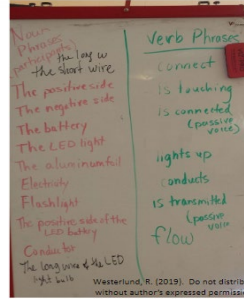 Noun
Phrases
participants
the long w
the short wire
The positive side
The negative side
The battery
The LED light
The aluminum foil
Electricity
Flashlight
The positive side of the
LED battery
Conductor
The long wire of the LED
light bulb
Verb Phrases
connect
is touching
is connected
(passive
voice)
lights up
conducts
is transmitted
(passive
voice
flow
Westerlund, R. (2019). Do not distrib
without author's expressed permissi